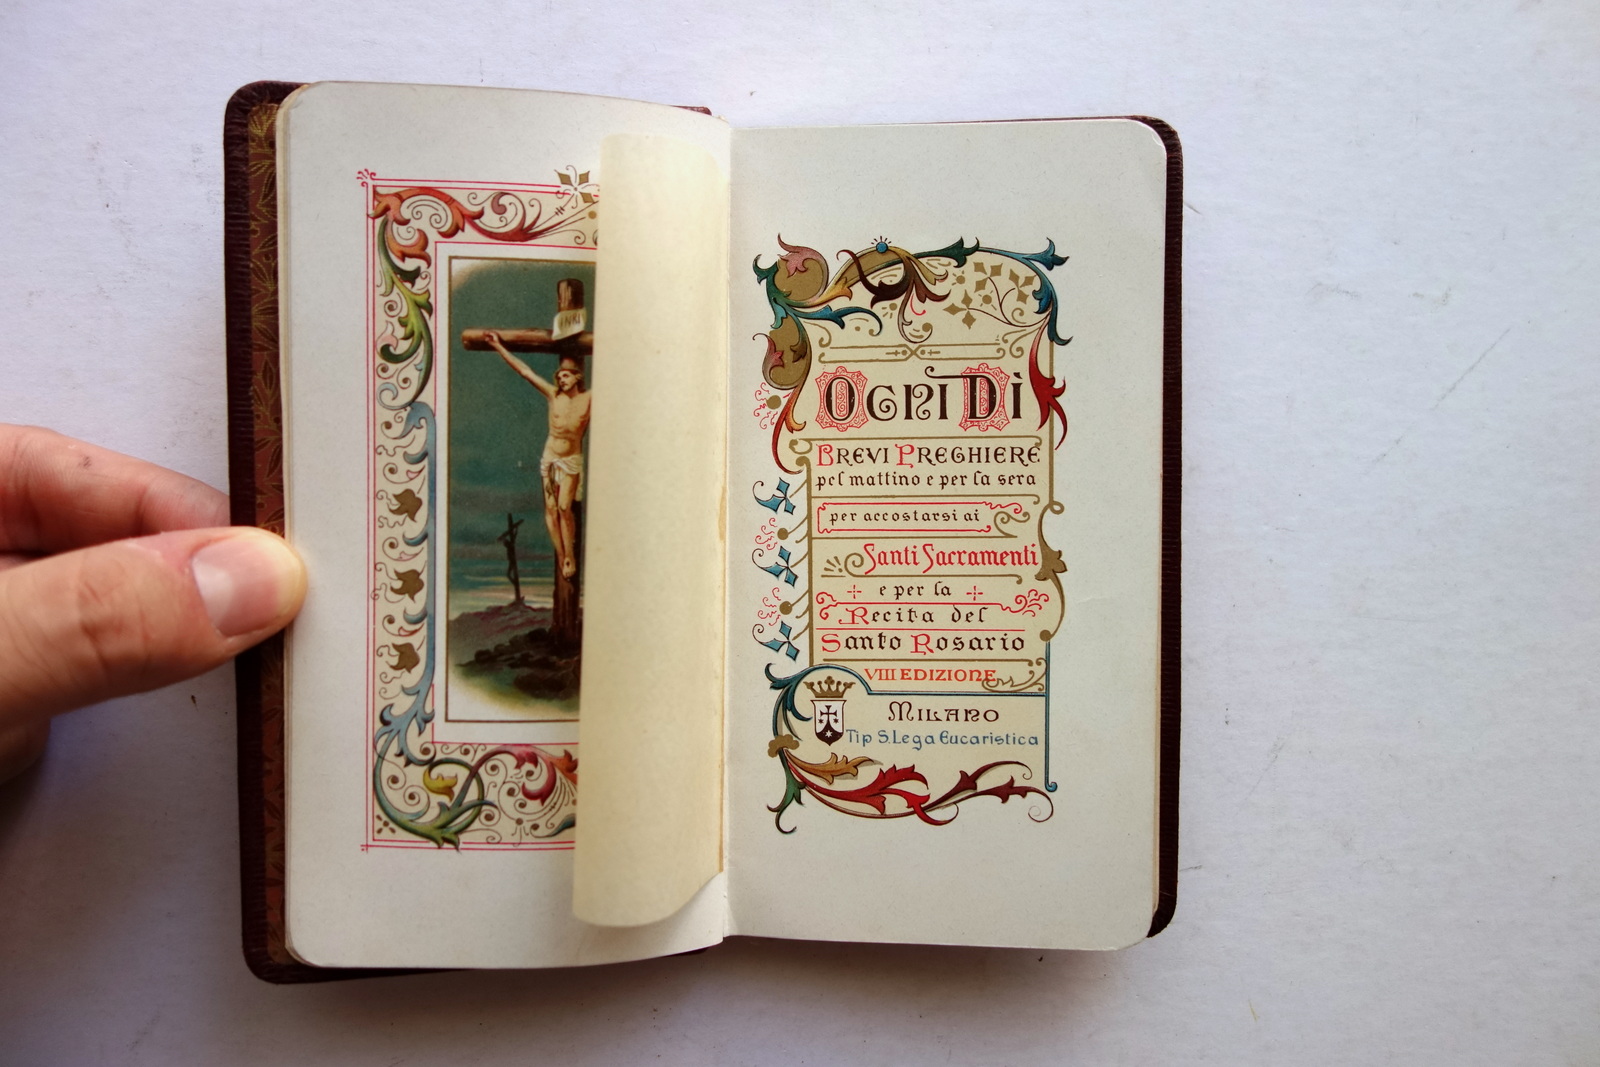 INRI
OGNI DÌ
BREVI PREGHIERE
pel mattino e per la sera
per accostarsi ai
Santi Sacramenti
e per la
Recita del
Santo Rosario
VIII EDIZIONE
MILANO
Tip S. Lega Eucaristica